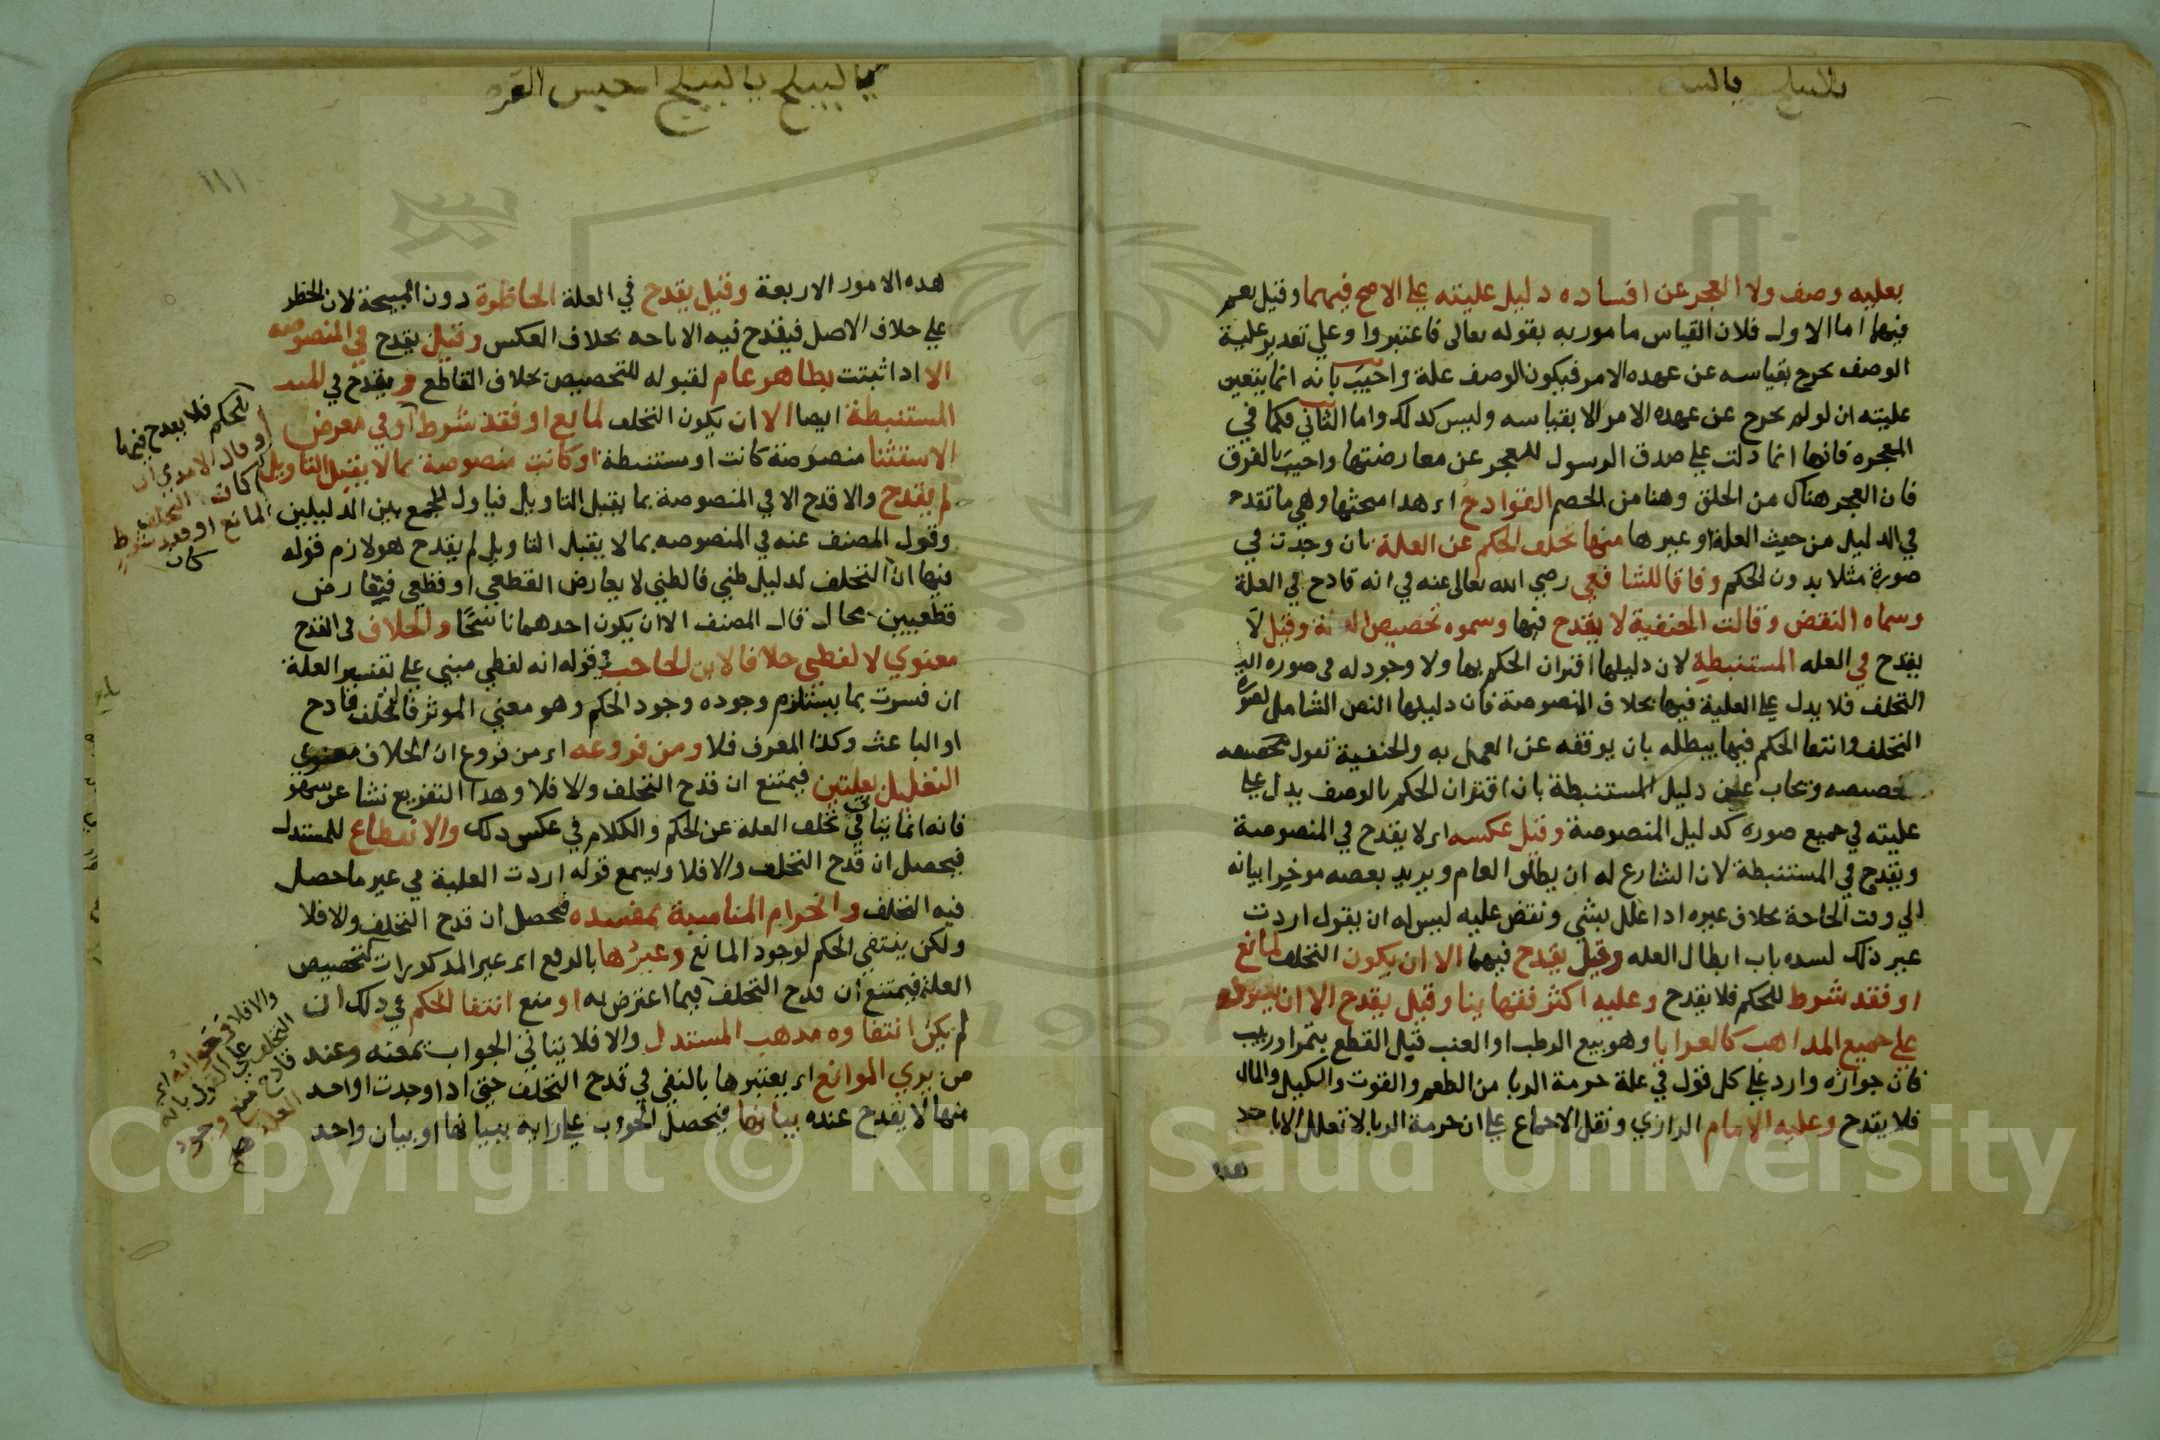 بعليه وصف ولا العجز عن افساده دليل عليته علي الاصح فيهما وقيل نعم
فيهما اما الاول فلان القياس مامور به بقوله تعالى فاعتبروا وعلي تقدير علية
الوصف يخرج بقياسه عن عهدة الامر فيكون الوصف علة واجيب بانه انما يتعين
عليته ان لو لم يخرج عن عهدة الامر الا بقياسه وليس كذلك واما الثاني فكما في
المعجزه فانها انما دلت علي صدق الرسول للعجز عن معارضتها واجيب بالفرق
فان العجز هناك من الخلق وهنا من الخصم القوادح اي هذا مبحثها وهي ما تقدح
في الدليل من حيث العلة او غيرها منها تخلف الحكم عن العلة بان وجدت في
صورة مثلا بدون الحكم وفاقا للشافعي رضي الله تعالى عنه في انه قادح في العلة
وسماه النقض وقالت الحنفية لا يقدح فيها وسموه تخصيص العلة وقيل لا
يقدح في العله المستنبطة لان دليلها اقتران الحكم بها ولا وجود له في صورة
التخلف فلا يدل علي العلية فيها بخلاف المنصوصة فان دليلها النص الشامل لصورة
التخلف وانتفا الحكم فيها يبطله بان يوقفه عن العمل به والحنفية تقول تخصصه
تخصيصه ويجاب عن دليل المستنبطة بان اقتران الحكم بالوصف يدل علي
عليته في جميع صوره كدليل المنصوصة وقيل عكسه اي لا يقدح في المنصوصة
ويقدح في المستنبطة لان الشارع له ان يطلق العام ويريد بعضه موخرا بيانه
الي وقت الحاجة بخلاف غيره اذا علل بشي ونقض عليه ليس له ان يقول اردت
غير ذلك لسده باب ابطال العله وقيل يقدح فيهما الا ان يكون التخلف لمانع
او فقد شرط للحكم فلا يقدح وعليه اكثر فقهاينا وقيل يقدح الا ان يرد
علي جميع المذاهب كالعرايا وهو بيع الرطب او العنب قبل القطع بتمر او زبيب
فان جوازه وارد علي كل قول في علة حرمة الربا من الطعم والقوت والكيل والمال
فلا يقدح وعليه الامام الرازي ونقل الاجماع علي ان حرمة الربا لا تعلل الا باحد
هذه
يا كبيكج يا كبيكج احبس
١١١
هذه الامور الاربعة وقيل يقدح في العلة الحاظرة دون المبيحة لان الحظر
علي خلاف الاصل فيقدح فيه الاباحه بخلاف العكس وقيل يقدح في المنصوصه
الا اذا ثبتت بظاهر عام لقبوله للتخصيص بخلاف القاطع ويقدح في
المستنبطة ايضا الا ان يكون التخلف لمانع او فقد شرط او في معرض
الاستثنا منصوصة كانت او مستنبطة او كانت منصوصة بما لا يقبل التاويل
لم يقدح والا قدح الا في المنصوصة بما يقبل التاويل فياول للجمع بين الدليلين
وقول المصنف عنه في المنصوصه بما لا يقبل التاويل لم يقدح هو لازم قوله
فيها ان التخلف لدليل ظني فالظني لا يعارض القطعي او قطعي فتعارض
قطعيين محال قال المصنف الا ان يكون احدهما ناسخا والخلاف في القدح
معنوي لا لفظي خلافا لابن الحاجب في قوله انه لفظي مبني علي تفسير العلة
ان فسرت بما يستلزم وجوده وجود الحكم وهو معني الموثر فالتخلف قادح
او الباعث وكذا المعرف فلا ومن فروعه اي من فروع ان الخلاف معنوي
التعليل بعلتين فيمتنع ان قدح التخلف والا فلا وهذا التفريع نشا عن سهو
فانه انما يتاتي في تخلف العلة عن الحكم والكلام في عكس ذلك والانقطاع للمستدل
فيحصل ان قدح التخلف والا فلا ويسمع قوله اردت العلية في غير ما حصل
فيه التخلف وانخرام المناسبة بمفسده فيحصل ان قدح التخلف والا فلا
ولكن ينتفي الحكم لوجود المانع وغيرها بالرفع اي غير المذكورات كتخصيص
العلة فيمتنع ان قدح التخلف فيما اعترض به او منع انتفا الحكم في ذلك ان
لم يكن انتفاوه مذهب المستدل والا فلا يتاتي الجواب بمنعه وعند
من يري الموانع اي يعتبرها بالنفي في قدح التخلف حتي اذا وجدت او واحد
منها لا يقدح عنده بيانها فيحصل الجواب علي رايه ببيانها او بيان واحد
للحكم فلا يقدح فيهما
وقال الامدي ان
كان التخلف
لمانع او فقد شرط
كان
والا فلا وجوابه اي
التخلف علي القول بانه
قادح منع وجود
العلة
Copyright © King Saud University
1957